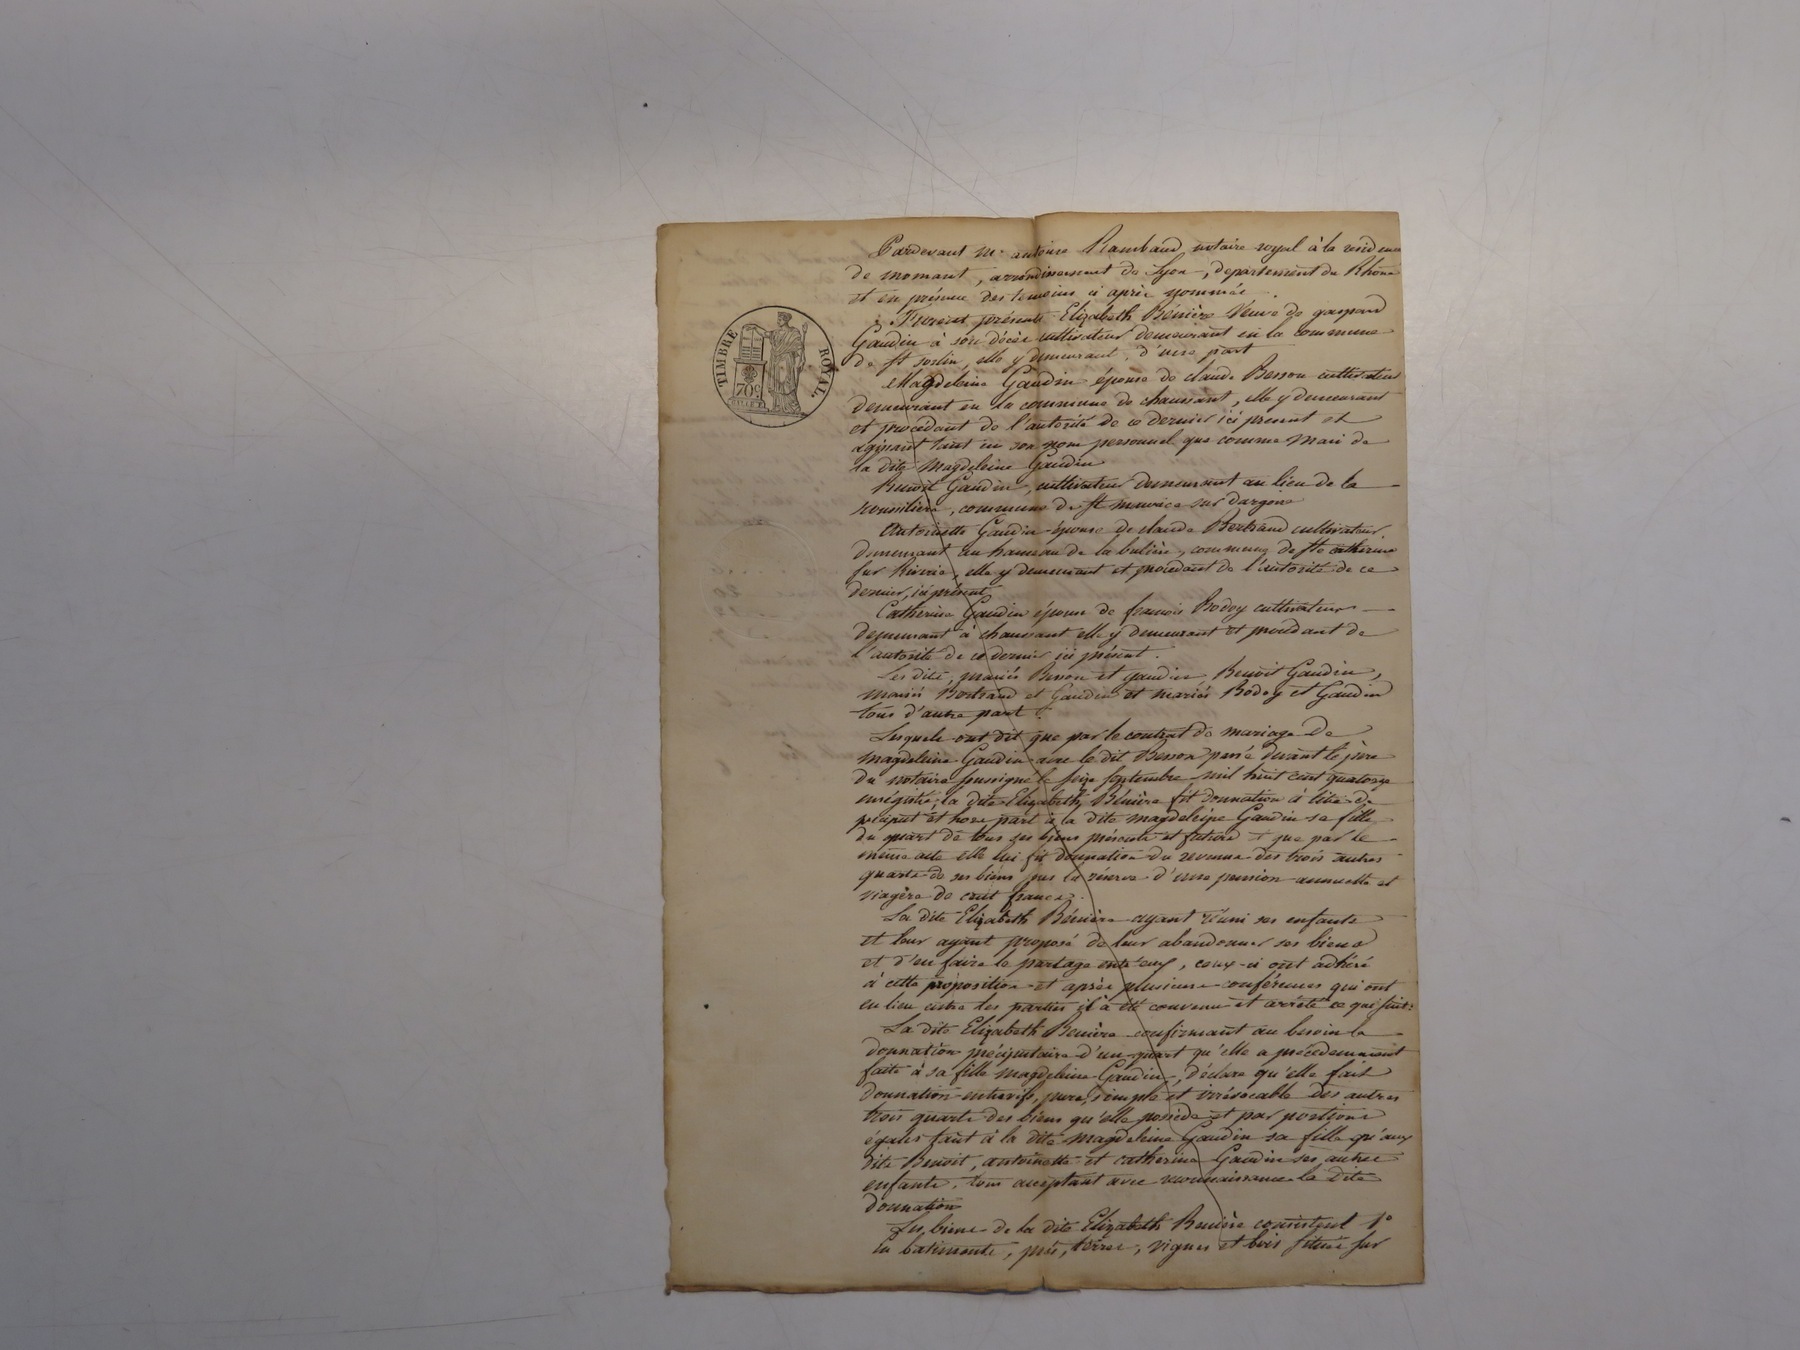 TIMBRE ROYAL
70c
Pardevant Me antoine Rambaud notaire royal à la residence
de mornant, arrondissement de Lyon, departement du Rhône
et en présence des temoins ci après nommés.
Furent présents Elizabeth Bénière Veuve de gaspard
Gaudin à son décès cultivateur demeurant en la commune
de st sorlin, elle y demeurant, d'une part
Magdeleine Gaudin épouse de claude Besson cultivateur
demeurant en la commune de chaussant, elle y demeurant
et procédant de l'autorité de ce dernier ici present et
agissant tant en son nom personnel que comme mari de
la dite Magdeleine Gaudin
Benoit Gaudin, cultivateur demeurant au lieu de la
commune de st maurice sur dargoire
Antoinette Gaudin épouse de claude Bertrand cultivateur
demeurant au hameau de la bulière, commune de ste catherine
sur Riverie, elle y demeurant et procédant de l'autorité de ce
dernier, ici présent
Catherine Gaudin épouse de francois Bodoy cultivateur
demeurant à chaussant elle y demeurant et procédant de
l'autorité de ce dernier ici présent.
Les dits, mariés Besson et gaudin, Benoit Gaudin,
mariés Bertrand et Gaudin et mariés Bodoy et Gaudin
tous d'autre part.
Lesquels ont dit que par le contrat de mariage de
magdeleine Gaudin avec le dit Besson passé devant le père
du notaire soussigné le seize septembre mil huit cent quatorze
enrégistré, la dite Elizabeth Bénière fit donnation à titre de
préciput et hors part à la dite magdeleine Gaudin sa fille
du quart de tous ses biens présents et futurs + que par le
même acte elle lui fit donnation du revenu des trois autres
quarts de ses biens sous la réserve d'une pension annuelle et
viagère de cent francs.
La dite Elizabeth Bénière ayant réuni ses enfants
et leur ayant proposé de leur abandonner ses biens
et d'en faire le partage entr'eux, ceux-ci ont adhéré
à cette proposition et après plusieurs conférences qui ont
eu lieu entre les parties il a été convenu et arrêté ce qui suit:
La dite Elizabeth Benière confirmant au besoin la
donnation préciputaire d'un quart qu'elle a précédemment
faite à sa fille magdeleine Gaudin, déclare qu'elle fait
donnation entrevifs, pure, simple et irrévocable des autres
trois quarts des biens qu'elle possède et par portions
égales tant à la dite magdeleine Gaudin sa fille qu'aux
dits Benoit, antoinette et catherine Gaudin ses autres
enfants, tous acceptant avec reconnaissance la dite
donnation
Les biens de la dite Elizabeth Benière consistent 1°
en batiments, prés, terres, vignes et bois situés sur